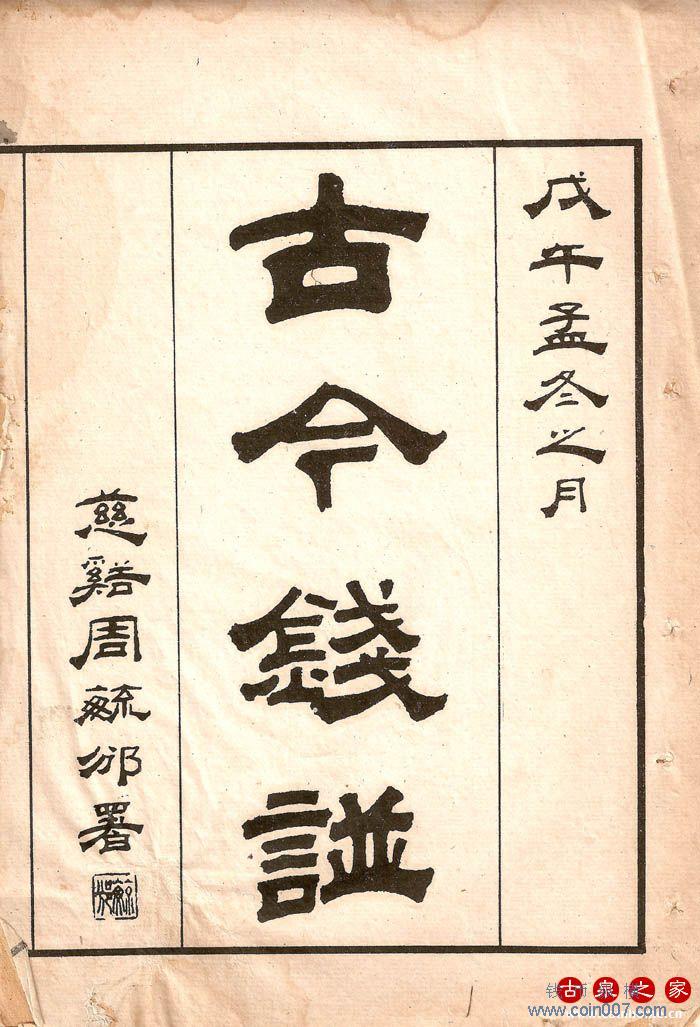 戊午孟冬之月
古今錢諩
慈谿周毓邠署
古泉之家
www.coin007.com